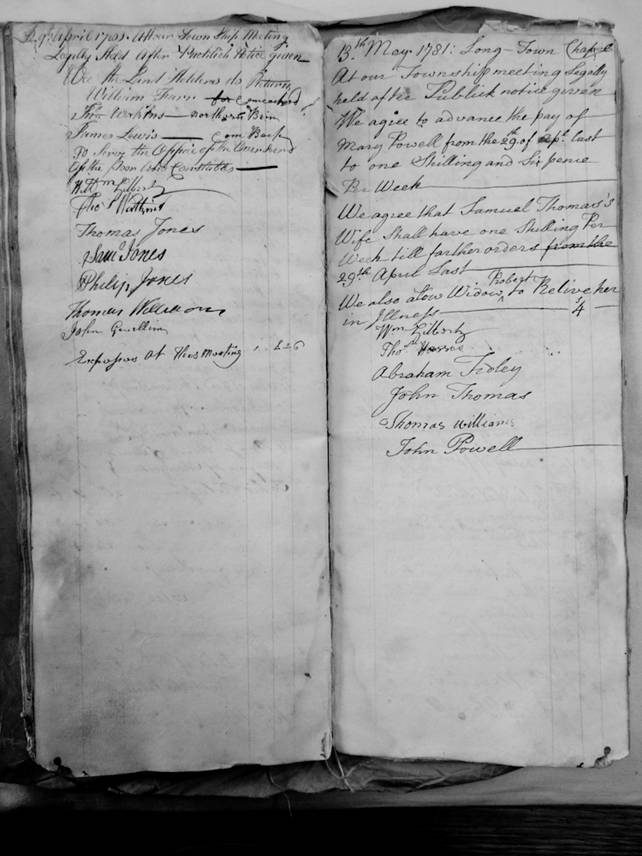 April 1781 At our Town Ship Meeting
Legally Held After Publick Notice given
We the Land Holders do Return
William Farr for
Thos Watkins
James Lewis
To Serve the Office of the Overseers
Of the Poor and Constable
Wm Gilbert
Thos Watkins
Thomas Jones
Saml Jones
Philip Jones
Thomas Williams
John Gwillim
Expenses At this Meeting £ 2 6
13th May 1781: Long-Town Chapel
At our Township meeting Legally
held after Publick notice given
We agree to advance the pay of
Mary Powell from the 29th of Apl. last
to one Shilling and Six pence
Per Week
We agree that Samuel Thomas's
Wife Shall have one Shilling Per
Week till farther orders from the
29th April Last
We also alow Widow Robert to Relive her
in Illness
Wm Gilbert
Thos
Abraham Froley
John Thomas
Thomas Williams
John Powell